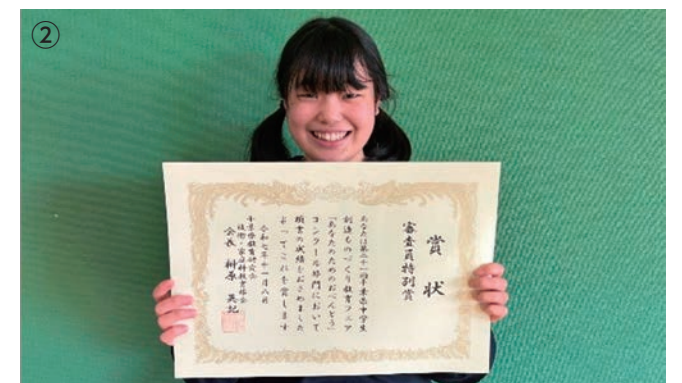 ②
賞状
審査員特別賞
あなたは第二十一回千葉県中学生
創造ものづくり教育フェア
「あなたのためのおべんとう」
コンクール部門において
頭書の成績をおさめました
よってこれを賞します
令和七年十一月八日
千葉県教育研究会
技術・家庭科教育部会
会長 榊原 英記